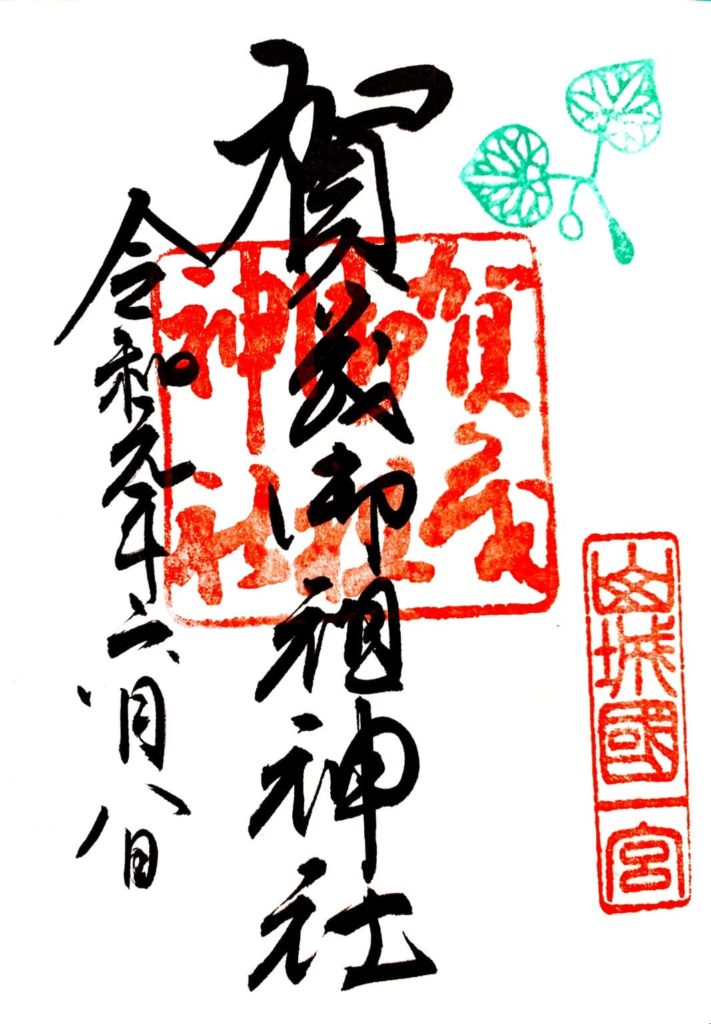 山城國一宮
賀茂御祖神社
賀茂
御祖
神社
令和元年六月八日